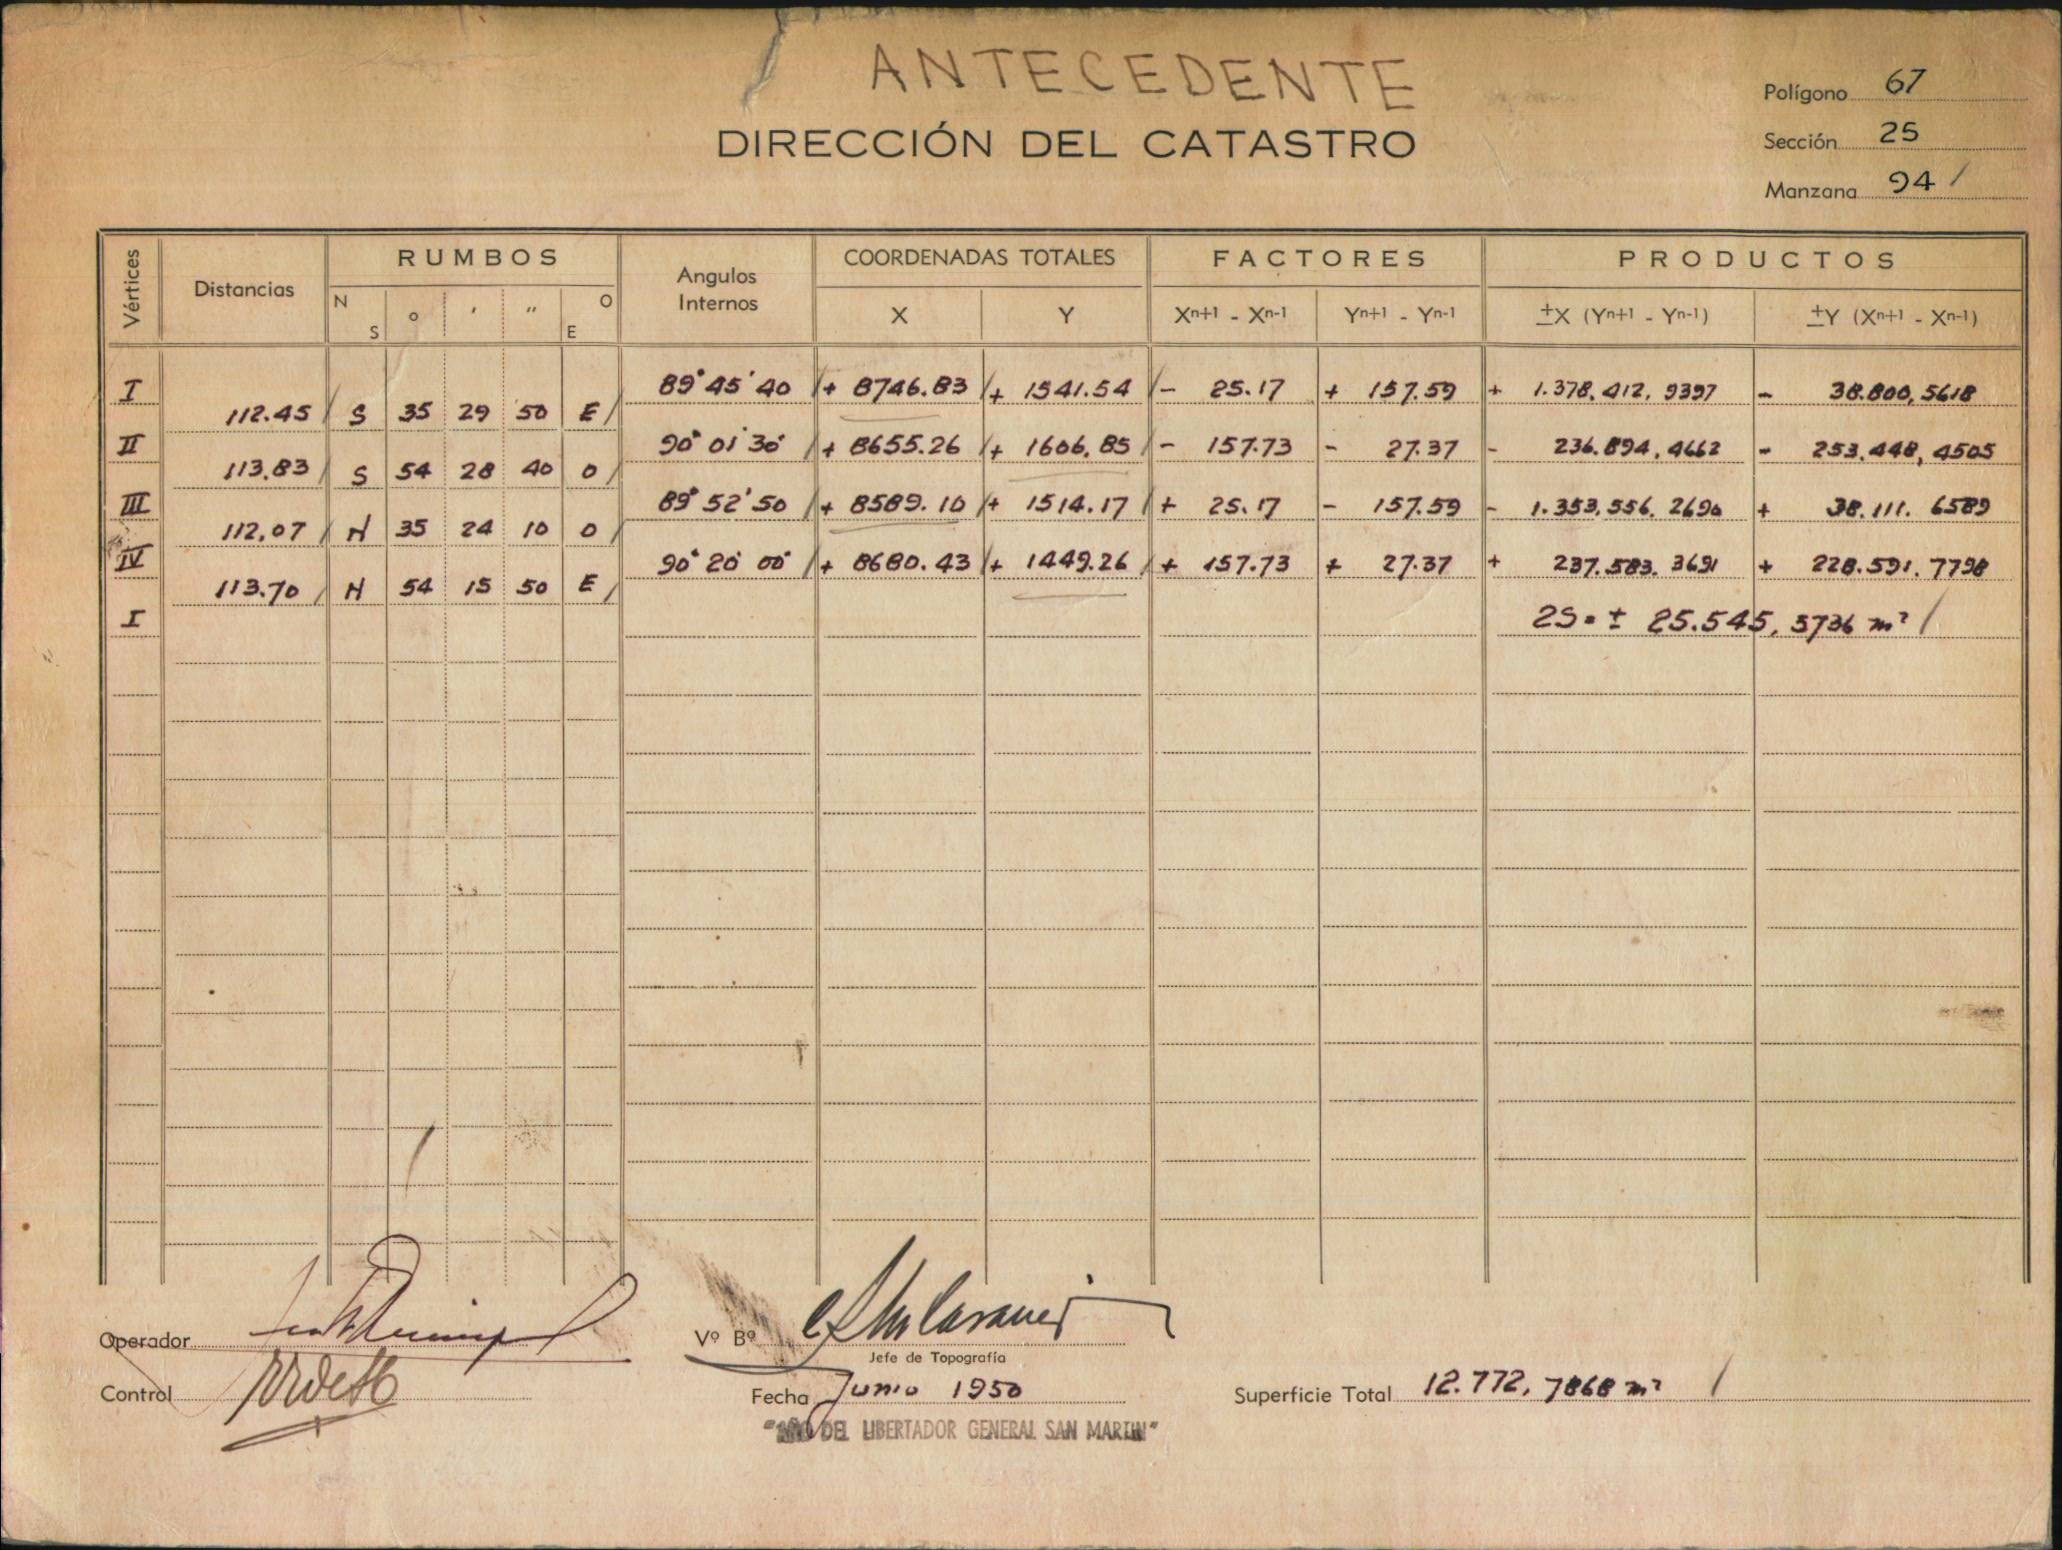 ANTECEDENTE
DIRECCIÓN DEL CATASTRO
Polígono 67
Sección 25
Manzana 94 /
Vértices Distancias RUMBOS Angulos Internos COORDENADAS TOTALES FACTORES PRODUCTOS
N S ° ' " O E X Y Xn+1 - Xn-1 Yn+1 - Yn-1 ±X (Yn+1 - Yn-1) ±Y (Xn+1 - Xn-1)
I 89° 45' 40 + 8746.83 + 1541.54 - 25.17 + 157.59 + 1.378.412,9397 - 38.800,5618
112.45 S 35 29 50 E
II 90° 01' 30" + 8655.26 + 1606.85 - 157.73 - 27.37 - 236.894,4662 - 253.448,4505
113.83 S 54 28 40 O
III 89° 52' 50 + 8589.10 + 1514.17 + 25.17 - 157.59 - 1.353.556.2690 + 38.111.6589
112.07 N 35 24 10 O
IV 90° 20' 00" + 8680.43 + 1449.26 + 157.73 + 27.37 + 237.583.3691 + 228.591.7798
113.70 N 54 15 50 E
I 2S = ± 25.545,5736 m² /
Operador
Vº Bº
Jefe de Topografía
Control
Fecha Junio 1950
Superficie Total 12.772,7868 m² /
"AÑO DEL LIBERTADOR GENERAL SAN MARTIN"